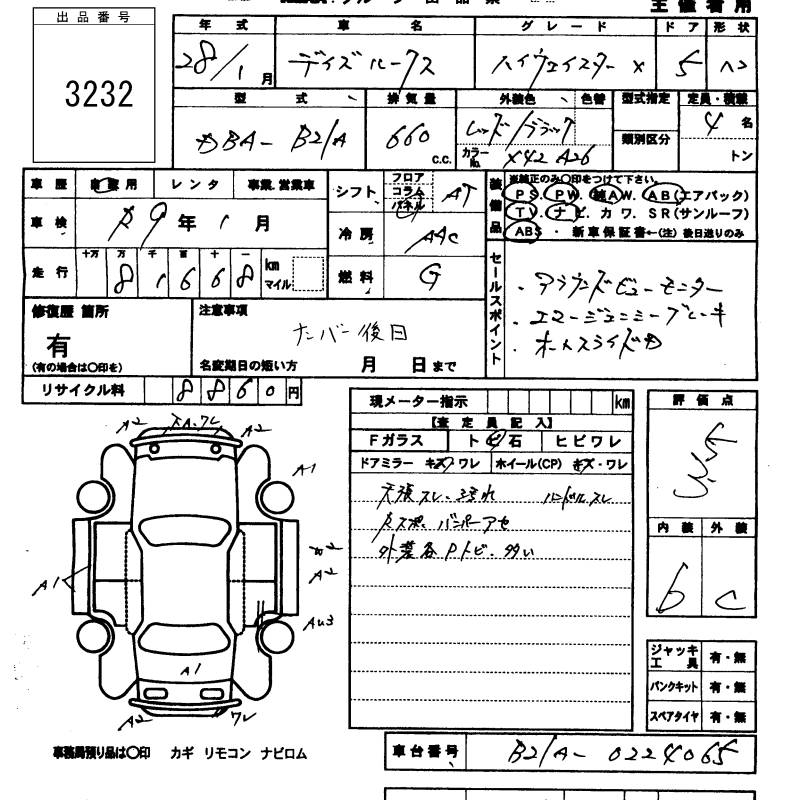 主催者用
出品番号
3232
年式 車名 グレード ドア 形状
28/1月 デイズルークス ハイウェイスター X 5 ハコ
型式 排気量 外装色 色替 型式指定 定員・積載
DBA-B21A 660 c.c. レッド/ブラック 類別区分 4名
カラーNo. X42 A26 トン
車歴 自家用 レンタ 事業.営業車
シフト フロア コラム パネル AT
装備品 ※純正のみ〇印をつけて下さい。
PS. PW. 純AW. AB(エアバック)
TV. ナビ. カワ. SR(サンルーフ)
ABS・新車保証書←(注)後日送りのみ
車検 R9年1月
冷房 AAC
走行 十万 万 千 百 十 一
81668 km マイル
燃料 G
セールスポイント
・アラウンドビューモニター
・エマージェンシーブレーキ
・オートスライドD
修復歴 箇所
有
(有の場合は〇印を)
注意事項
ナンバー後日
名変期日の短い方 月 日まで
リサイクル料 8860円
現メーター指示 km
【査定員記入】
Fガラス トビ石 ヒビワレ
ドアミラー キズ ワレ ホイール(CP) キズ・ワレ
天張スレ・ヨゴれ ハンドルスレ
バンパーアセ
外装各Pトビ・多い
評価点
3.5
内装 外装
b c
A2 A2
A1
A2
A1
AU3
A1
A2 ワレ
ジャッキ工具 有・無
パンクキット 有・無
スペアタイヤ 有・無
事務局預り品は〇印 カギ リモコン ナビロム
車台番号 B21A-0224065